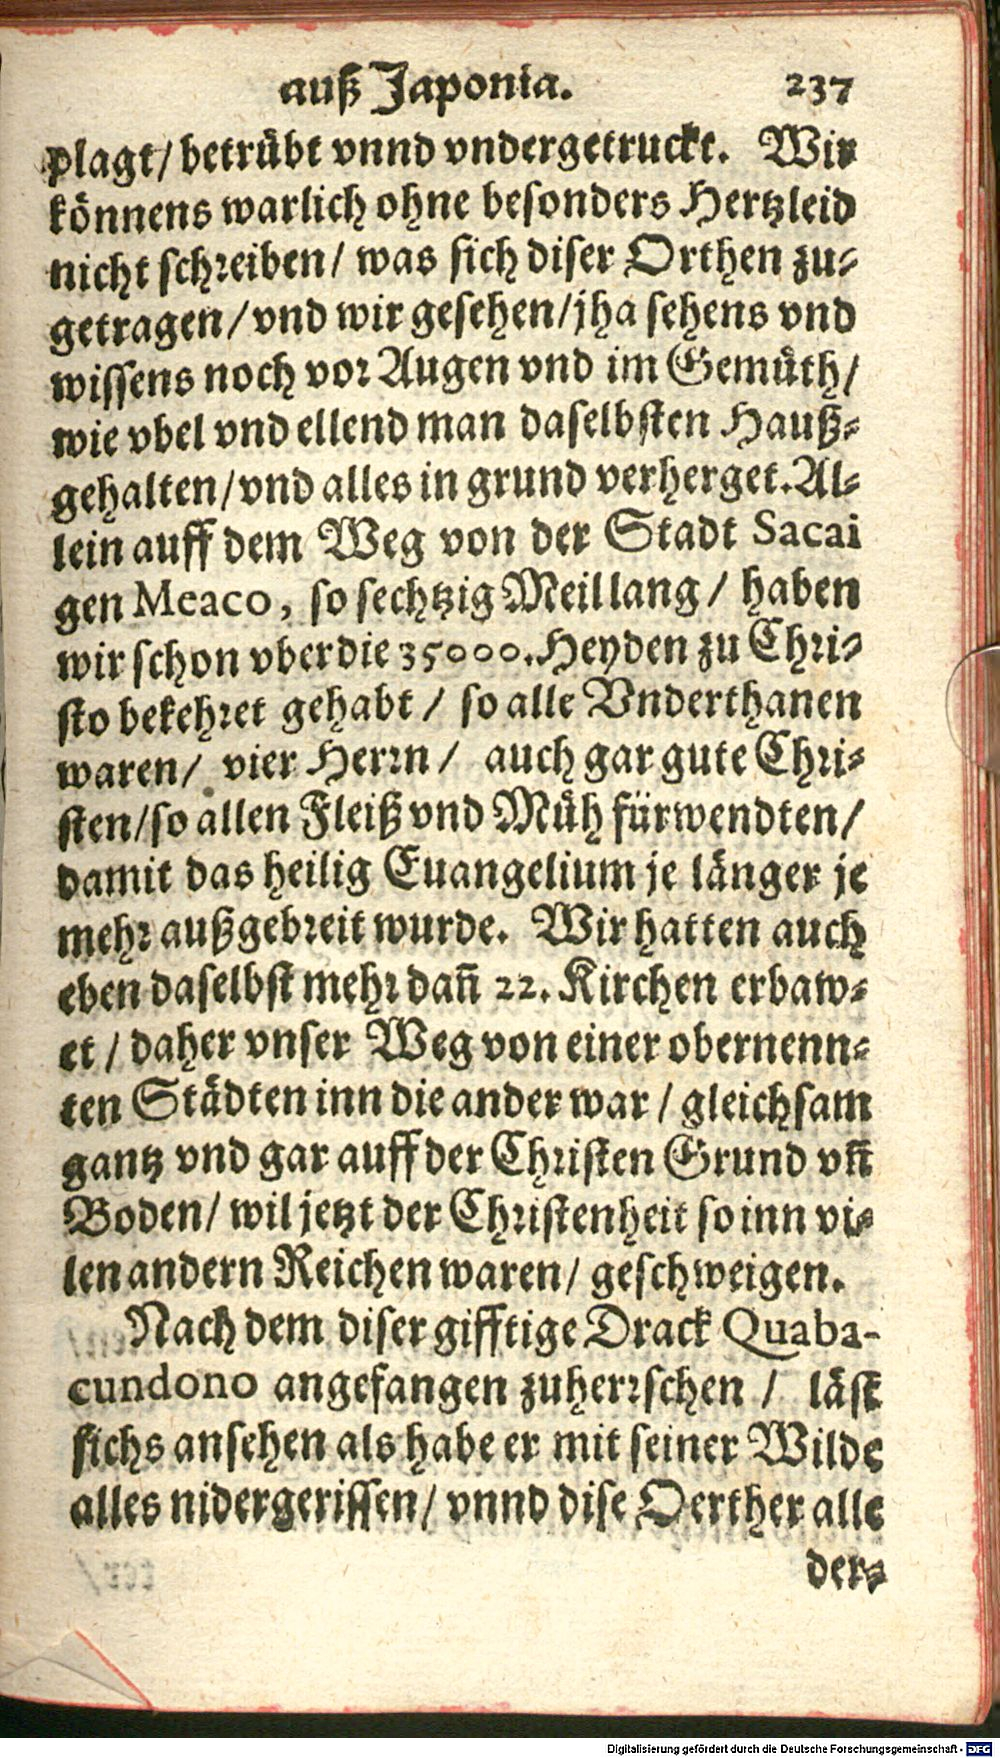 auß Japonia. 237
plagt/ betrübt vnnd vndergetruckt. Wir
könnens warlich ohne besonders Hertzleid
nicht schreiben/ was sich diser Orthen zu-
getragen/ vnd wir gesehen/ jha sehens vnd
wissens noch vor Augen vnd im Gemüth/
wie vbel vnd ellend man daselbsten Hauß-
gehalten/ vnd alles in grund verherget. Al-
lein auff dem Weg von der Stadt Sacai
gen Meaco, so sechtzig Meil lang/ haben
wir schon vber die 35000. Heyden zu Chri-
sto bekehret gehabt/ so alle Vnderthanen
waren/ vier Herrn/ auch gar gute Chri-
sten/ so allen Fleiß vnd Müh fürwendten/
damit das heilig Euangelium je länger je
mehr außgebreit wurde. Wir hatten auch
eben daselbst mehr dan̄ 22. Kirchen erbaw-
et/ daher vnser Weg von einer obernenn-
ten Städten inn die ander war/ gleichsam
gantz vnd gar auff der Christen Grund vn̄
Boden/ wil jetzt der Christenheit so inn vi-
len andern Reichen waren/ geschweigen.
Nach dem diser gifftige Drack Quaba-
cundono angefangen zuherrschen/ läst
sichs ansehen als habe er mit seiner Wilde
alles nidergerissen/ vnnd dise Oerther alle
der-
Digitalisierung gefördert durch die Deutsche Forschungsgemeinschaft - DFG